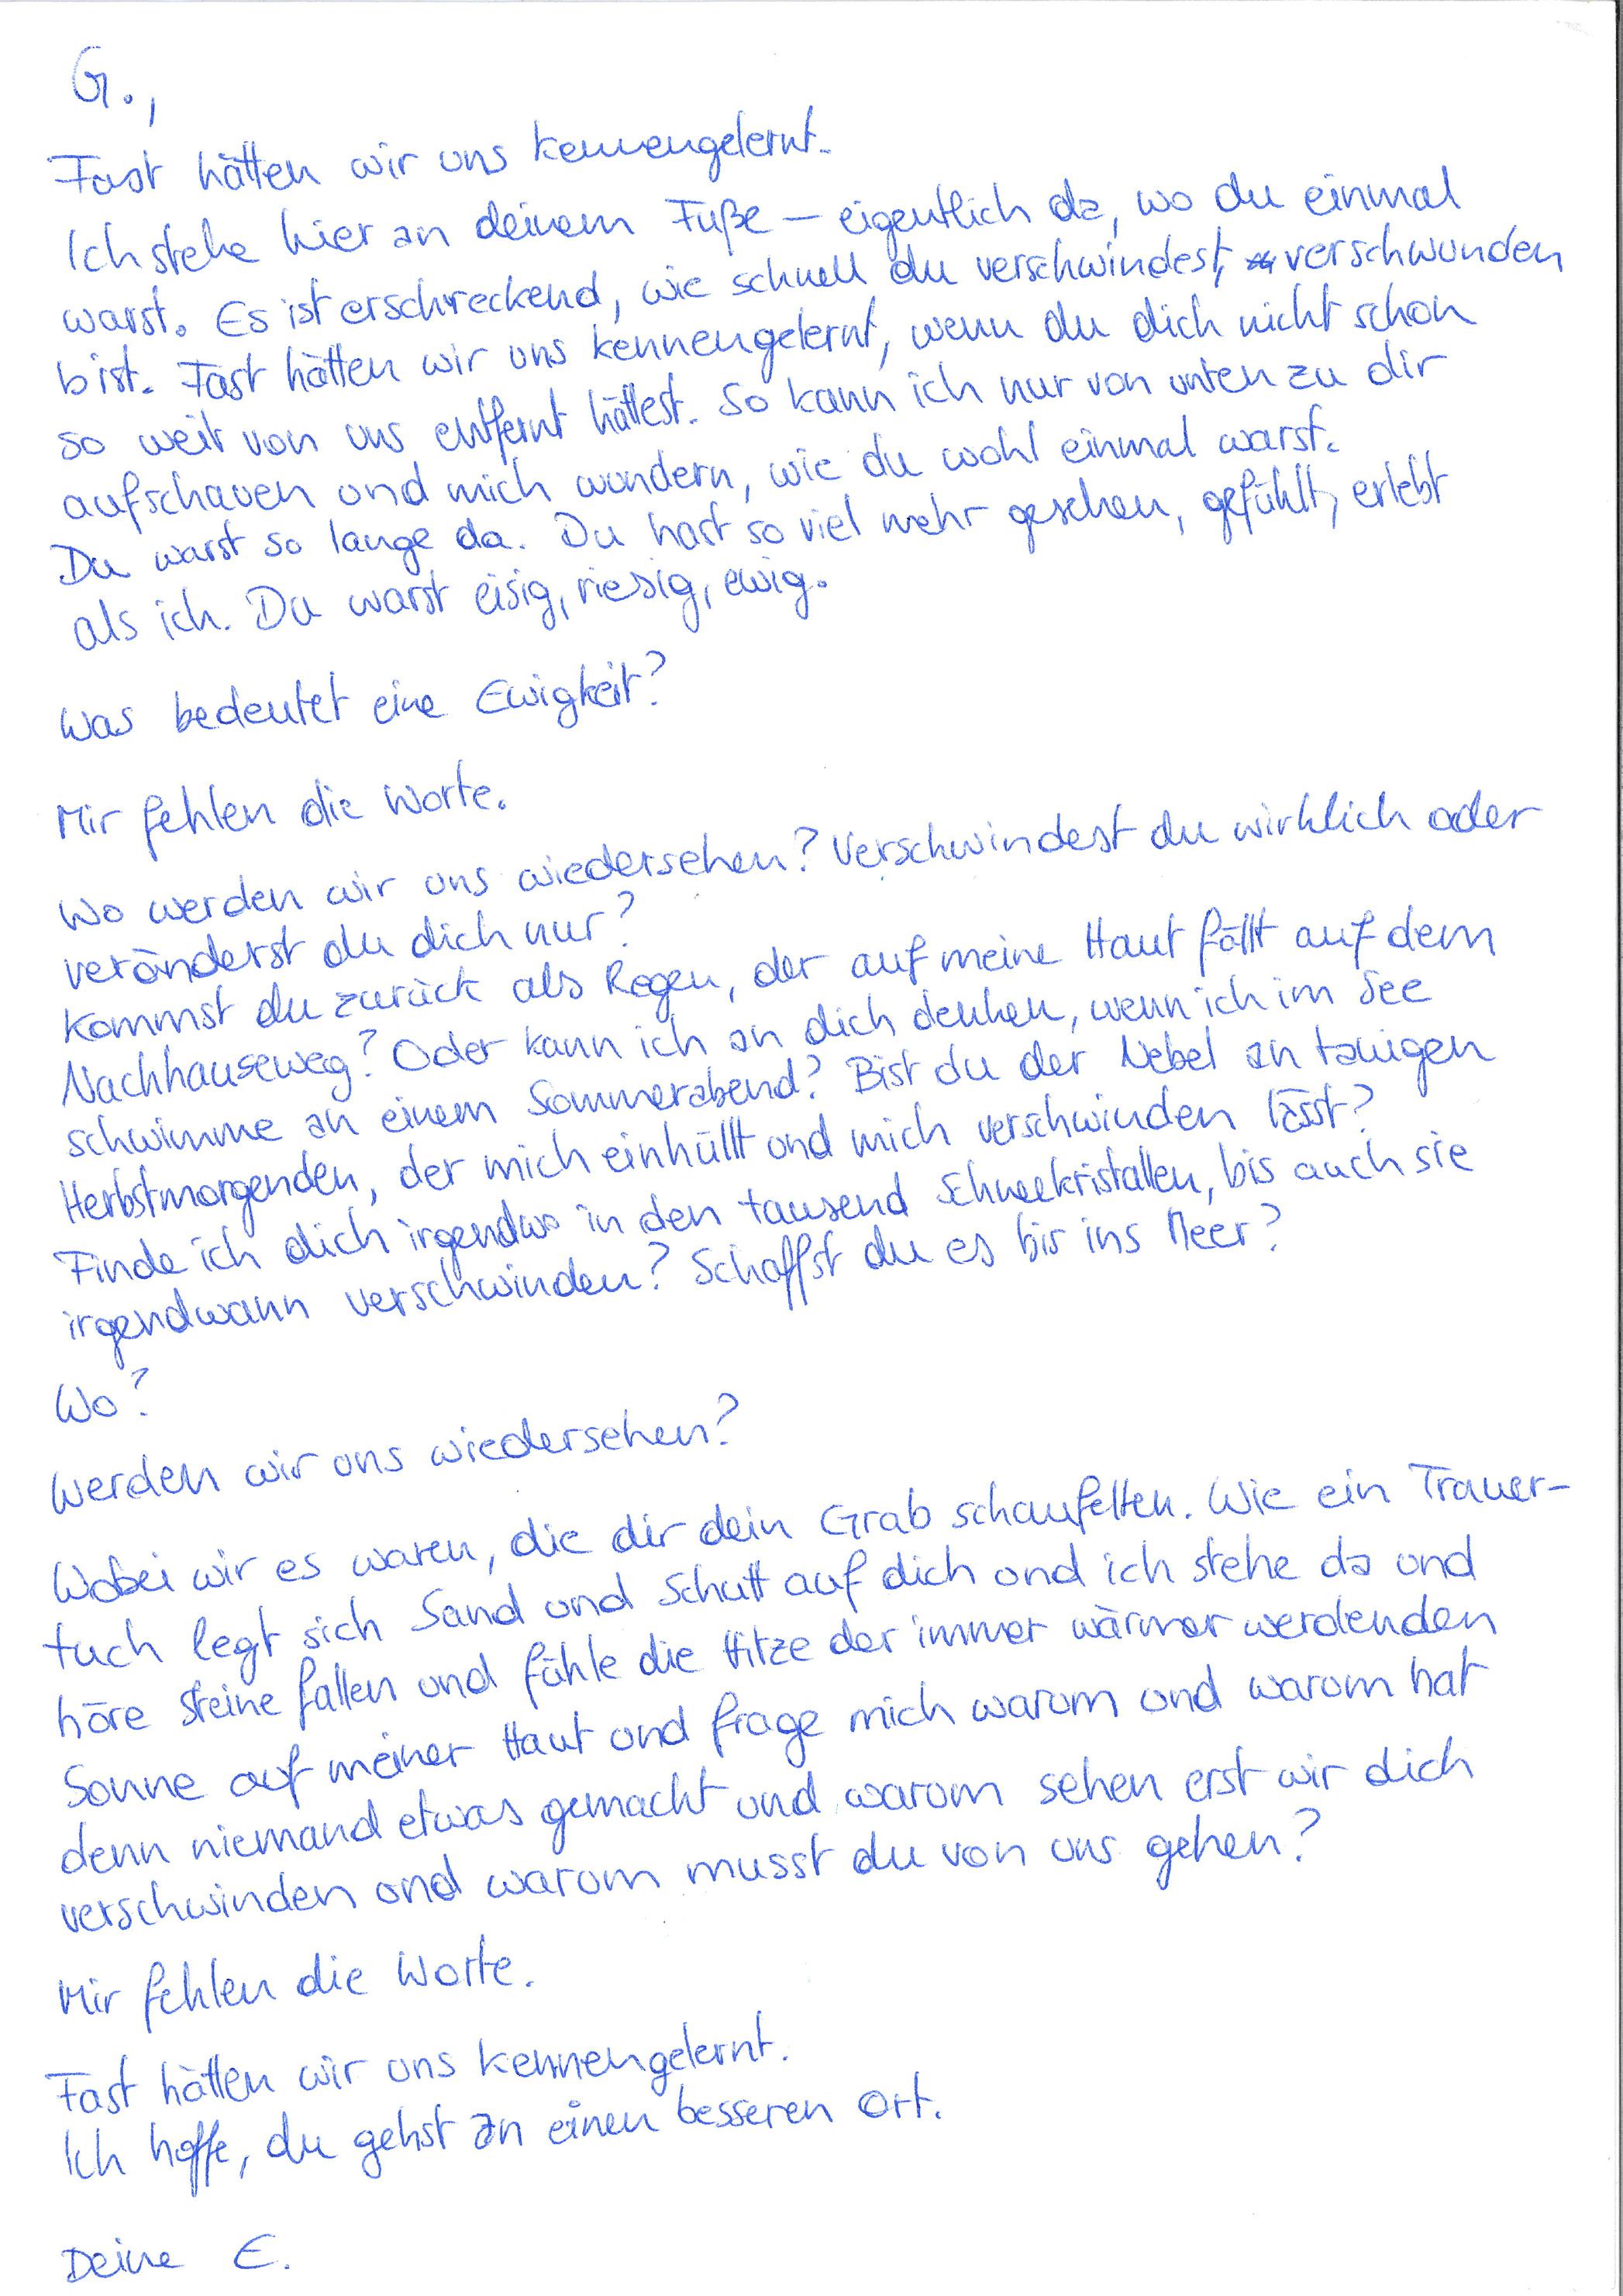 G.,
Fast hätten wir uns kennengelernt.
Ich stehe hier an deinem Fuße – eigentlich da, wo du einmal
warst. Es ist erschreckend, wie schnell du verschwindest, verschwunden
bist. Fast hätten wir uns kennengelernt, wenn du dich nicht schon
so weit von uns entfernt hättest. So kann ich nur von unten zu dir
aufschauen und mich wundern, wie du wohl einmal warst.
Du warst so lange da. Du hast so viel mehr gesehen, gefühlt, erlebt
als ich. Du warst eisig, riesig, ewig.
Was bedeutet eine Ewigkeit?
Mir fehlen die Worte.
Wo werden wir uns wiedersehen? Verschwindest du wirklich oder
veränderst du dich nur?
Kommst du zurück als Regen, der auf meine Haut fällt auf dem
Nachhauseweg? Oder kann ich an dich denken, wenn ich im See
schwimme an einem Sommerabend? Bist du der Nebel an tauigen
Herbstmorgenden, der mich einhüllt und mich verschwinden lässt?
Finde ich dich irgendwo in den tausend Schneekristallen, bis auch sie
irgendwann verschwinden? Schaffst du es bis ins Meer?
Wo?
Werden wir uns wiedersehen?
Wobei wir es waren, die dir dein Grab schaufelten. Wie ein Trauer-
tuch legt sich Sand und Schutt auf dich und ich stehe da und
höre Steine fallen und fühle die Hitze der immer wärmer werdenden
Sonne auf meiner Haut und frage mich warum und warum hat
denn niemand etwas gemacht und warum sehen erst wir dich
verschwinden und warum musst du von uns gehen?
Mir fehlen die Worte.
Fast hätten wir uns kennengelernt.
Ich hoffe, du gehst an einen besseren Ort.
Deine E.